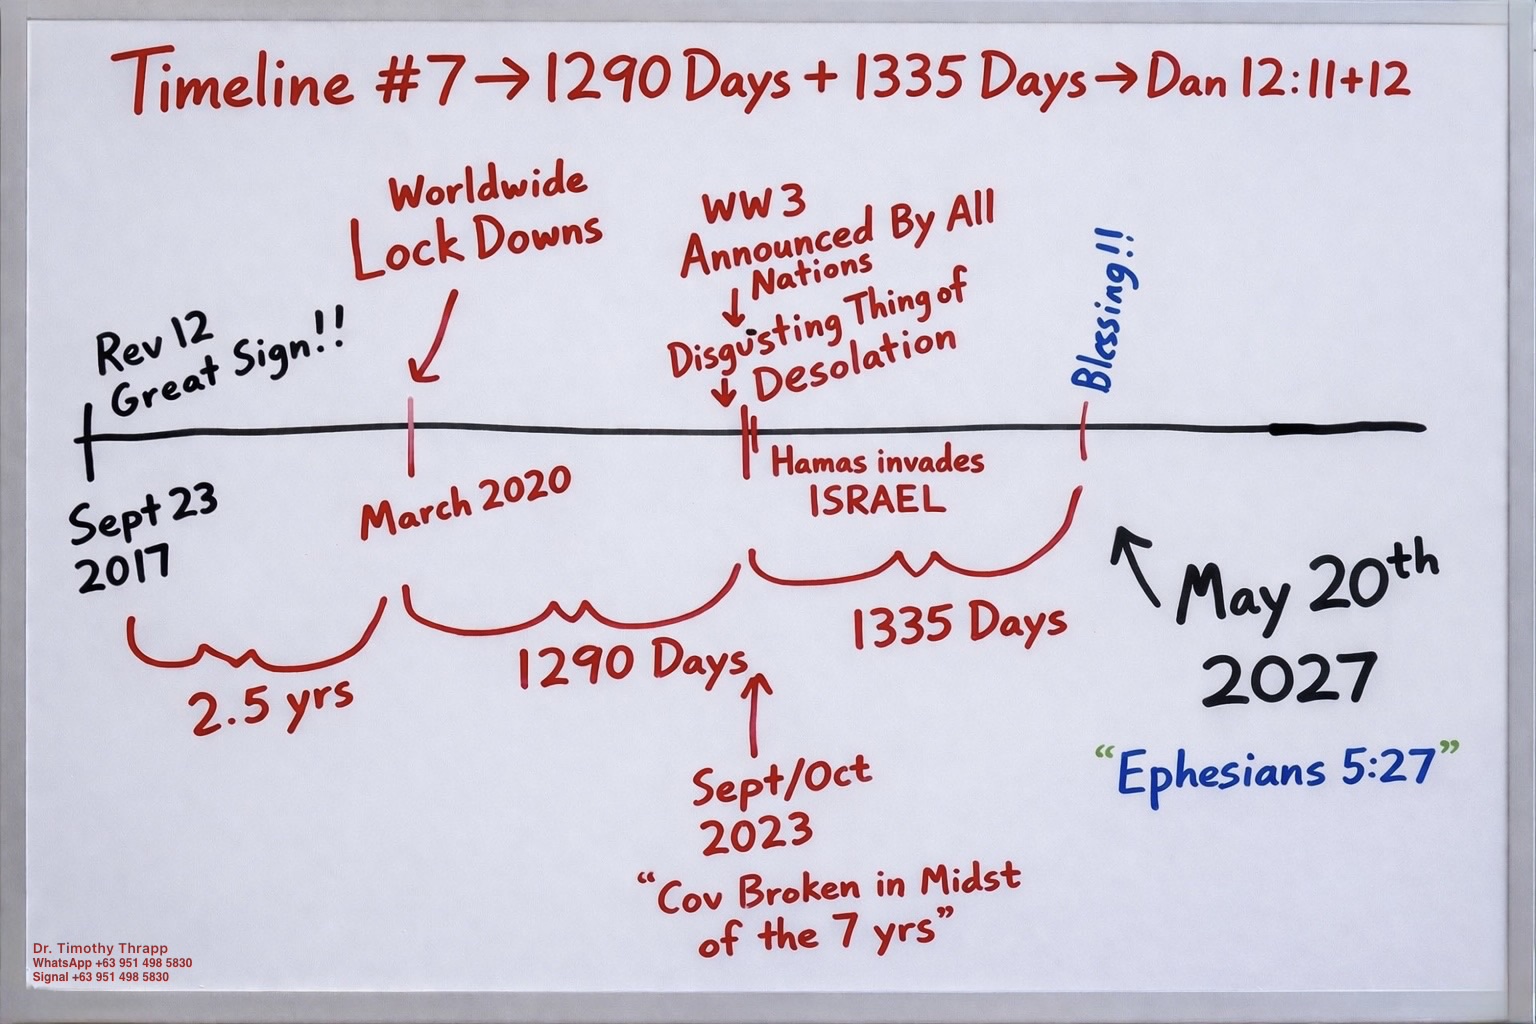 Timeline #7 → 1290 Days + 1335 Days → Dan 12:11+12
Worldwide
Lock Downs
WW3
Announced By All
Nations
Disgusting Thing of
Desolation
Blessing!!
Rev 12
Great Sign!!
Sept 23
2017
March 2020
Hamas invades
ISRAEL
2.5 yrs
1290 Days
1335 Days
May 20th
2027
"Ephesians 5:27"
Sept/Oct
2023
"Cov Broken in Midst
of the 7 yrs"
Dr. Timothy Thrapp
WhatsApp +63 951 498 5830
Signal +63 951 498 5830